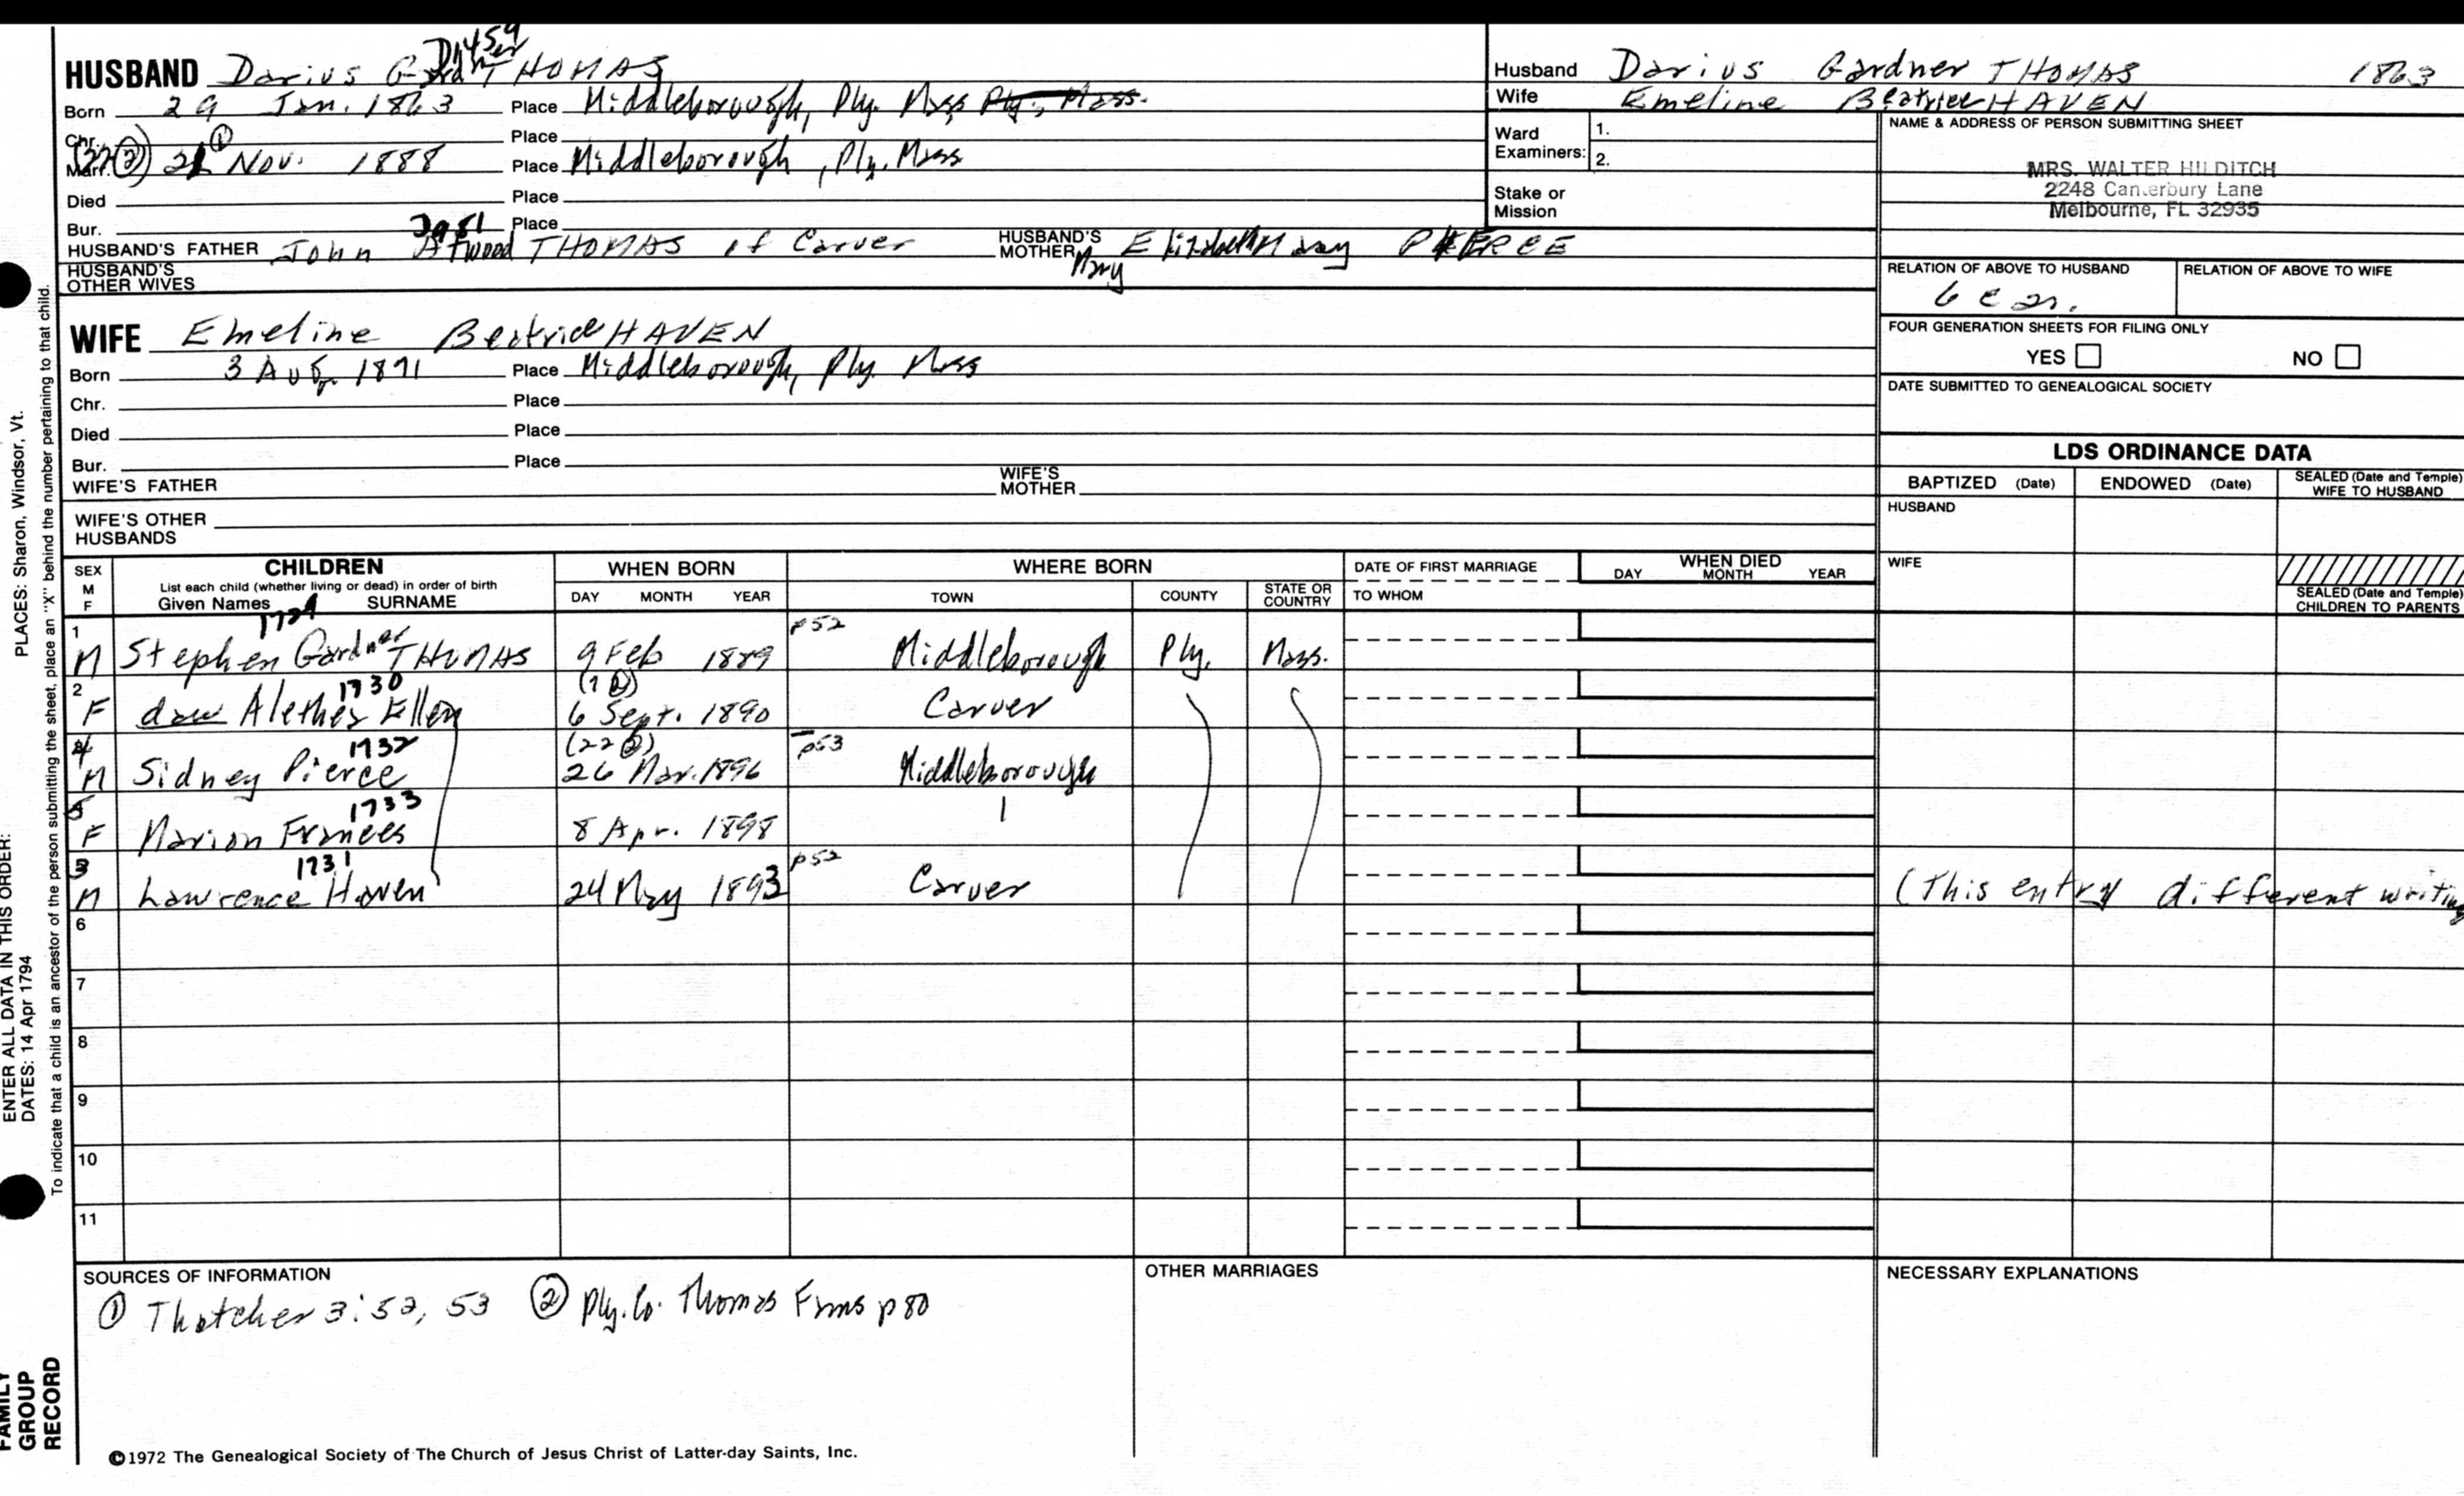 HUSBAND Darius Gardner THOMAS
D1459
Born 29 Jan. 1863 Place Middleborough, Ply. Mass Ply., Mass.
Chr. Place
Marr. (22②) 21 ① Nov. 1888 Place Middleborough, Ply. Mass
Died Place
Bur. Place
HUSBAND'S FATHER John Atwood THOMAS of Carver HUSBAND'S MOTHER Mary Elizabeth May PIERCE
HUSBAND'S OTHER WIVES
WIFE Emeline Beatrice HAVEN
Born 3 Aug. 1871 Place Middleborough, Ply. Mass
Chr. Place
Died Place
Bur. Place
WIFE'S FATHER WIFE'S MOTHER
WIFE'S OTHER HUSBANDS
Husband Darius Gardner THOMAS 1863
Wife Emeline Beatrice HAVEN
Ward Examiners: 1.
2.
Stake or Mission
NAME & ADDRESS OF PERSON SUBMITTING SHEET
MRS. WALTER HILDITCH
2248 Canterbury Lane
Melbourne, FL 32935
RELATION OF ABOVE TO HUSBAND RELATION OF ABOVE TO WIFE
FOUR GENERATION SHEETS FOR FILING ONLY
YES NO
DATE SUBMITTED TO GENEALOGICAL SOCIETY
LDS ORDINANCE DATA
BAPTIZED (Date) ENDOWED (Date) SEALED (Date and Temple) WIFE TO HUSBAND
HUSBAND
WIFE
SEALED (Date and Temple) CHILDREN TO PARENTS
SEX M F CHILDREN WHEN BORN WHERE BORN DATE OF FIRST MARRIAGE WHEN DIED
List each child (whether living or dead) in order of birth
Given Names SURNAME DAY MONTH YEAR TOWN COUNTY STATE OR COUNTRY TO WHOM DAY MONTH YEAR
1 1729 p52
M Stephen Gardner THOMAS 9 Feb 1889 Middleborough Ply. Mass.
2 1730 (1②)
F daw Alethea Ellen 6 Sept. 1890 Carver
4 1732 (22②) p53
M Sidney Pierce 26 Mar. 1896 Middleborough
5 1733
F Marion Frances 8 Apr. 1898
3 1731 p52
M Lawrence Haven 24 May 1893 Carver (This entry different writing
6
7
8
9
10
11
SOURCES OF INFORMATION OTHER MARRIAGES NECESSARY EXPLANATIONS
① Thatcher 3:52, 53 ② Ply. Co. Thomas Fams p 80
©1972 The Genealogical Society of The Church of Jesus Christ of Latter-day Saints, Inc.
PLACES: Sharon, Windsor, Vt.
To indicate that a child is an ancestor of the person submitting the sheet, place an "X" behind the number pertaining to that child.
ENTER ALL DATA IN THIS ORDER:
DATES: 14 Apr 1794
FAMILY GROUP RECORD